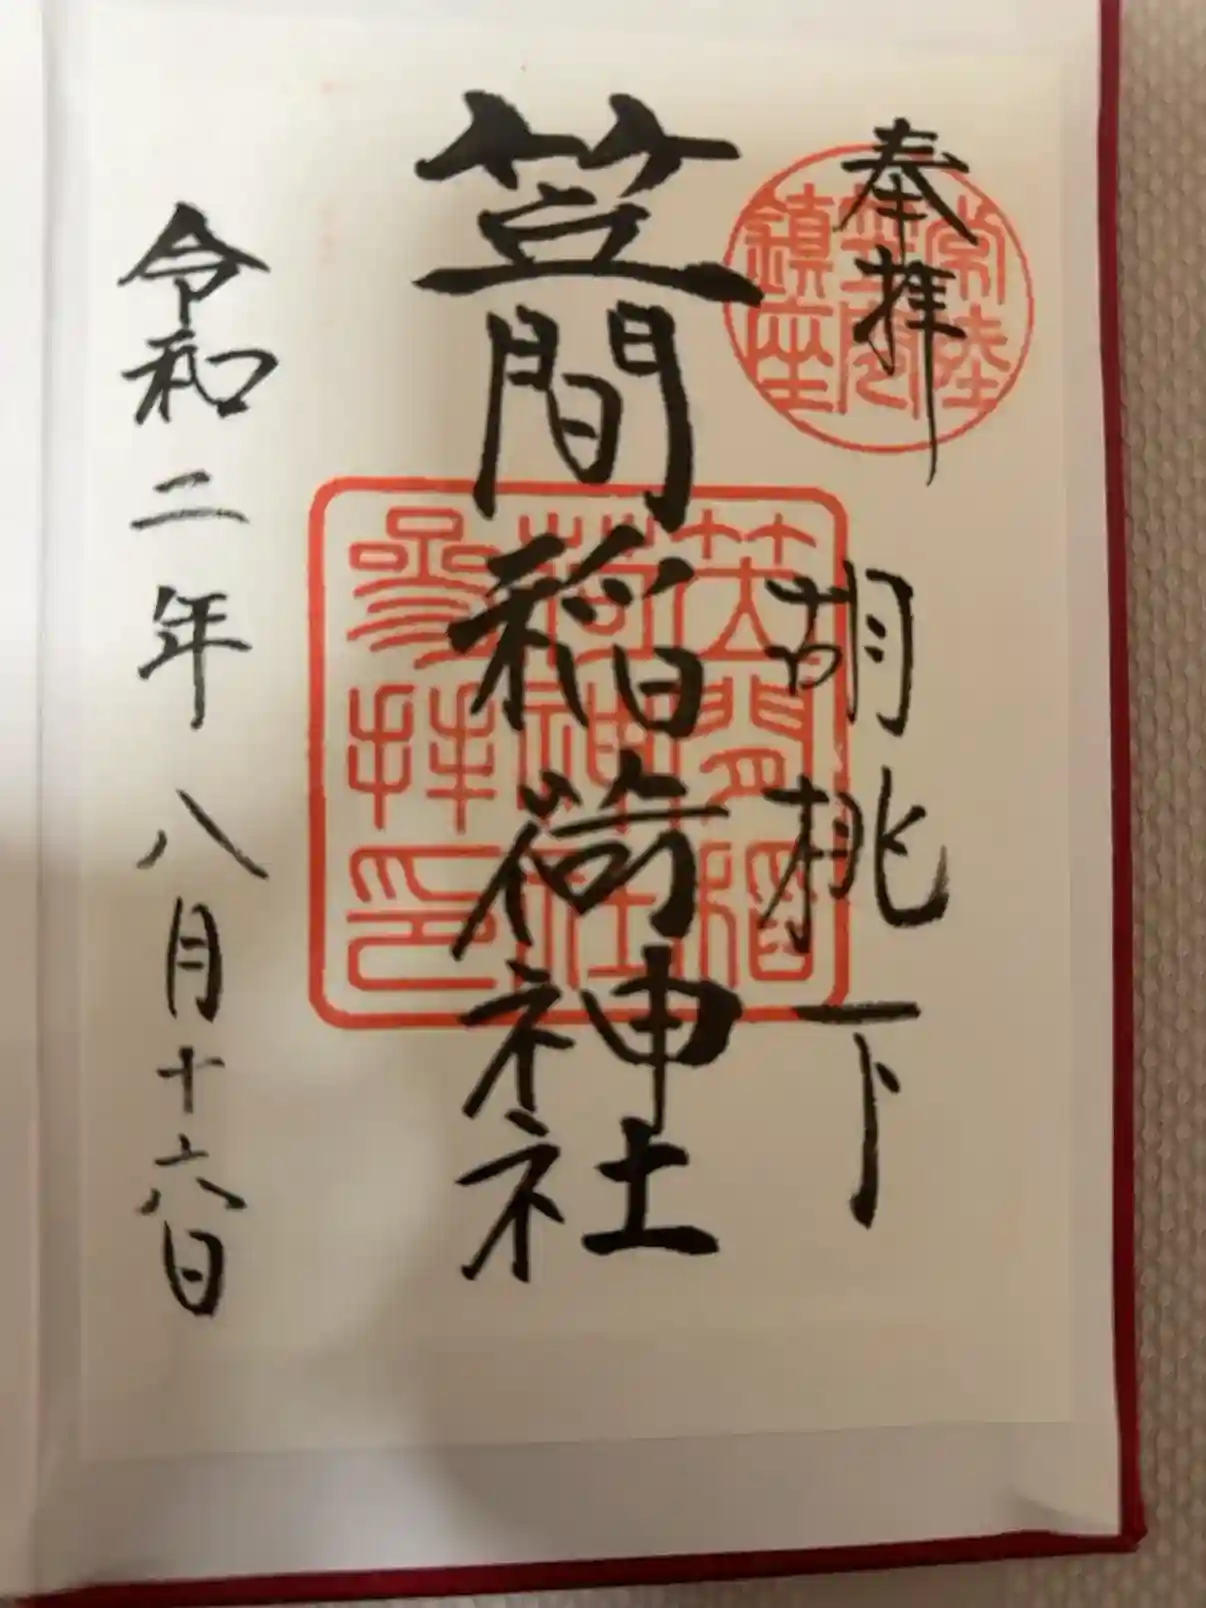 奉拝
胡桃下
笠間稲荷神社
令和二年八月十六日
常陸
笠間
鎮座
笠間稲
荷神社
参拝印